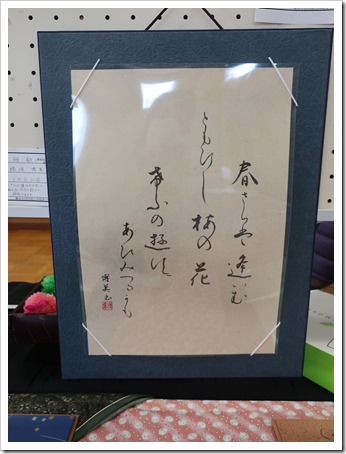 春さらは逢はむ
ともひし梅の花
希ふの遊ひに
あひみつるかも